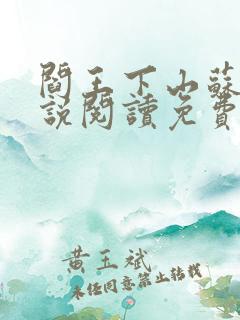 閻王下山蘇
說閱讀免費
黃玉斌
未經同意禁止轉載